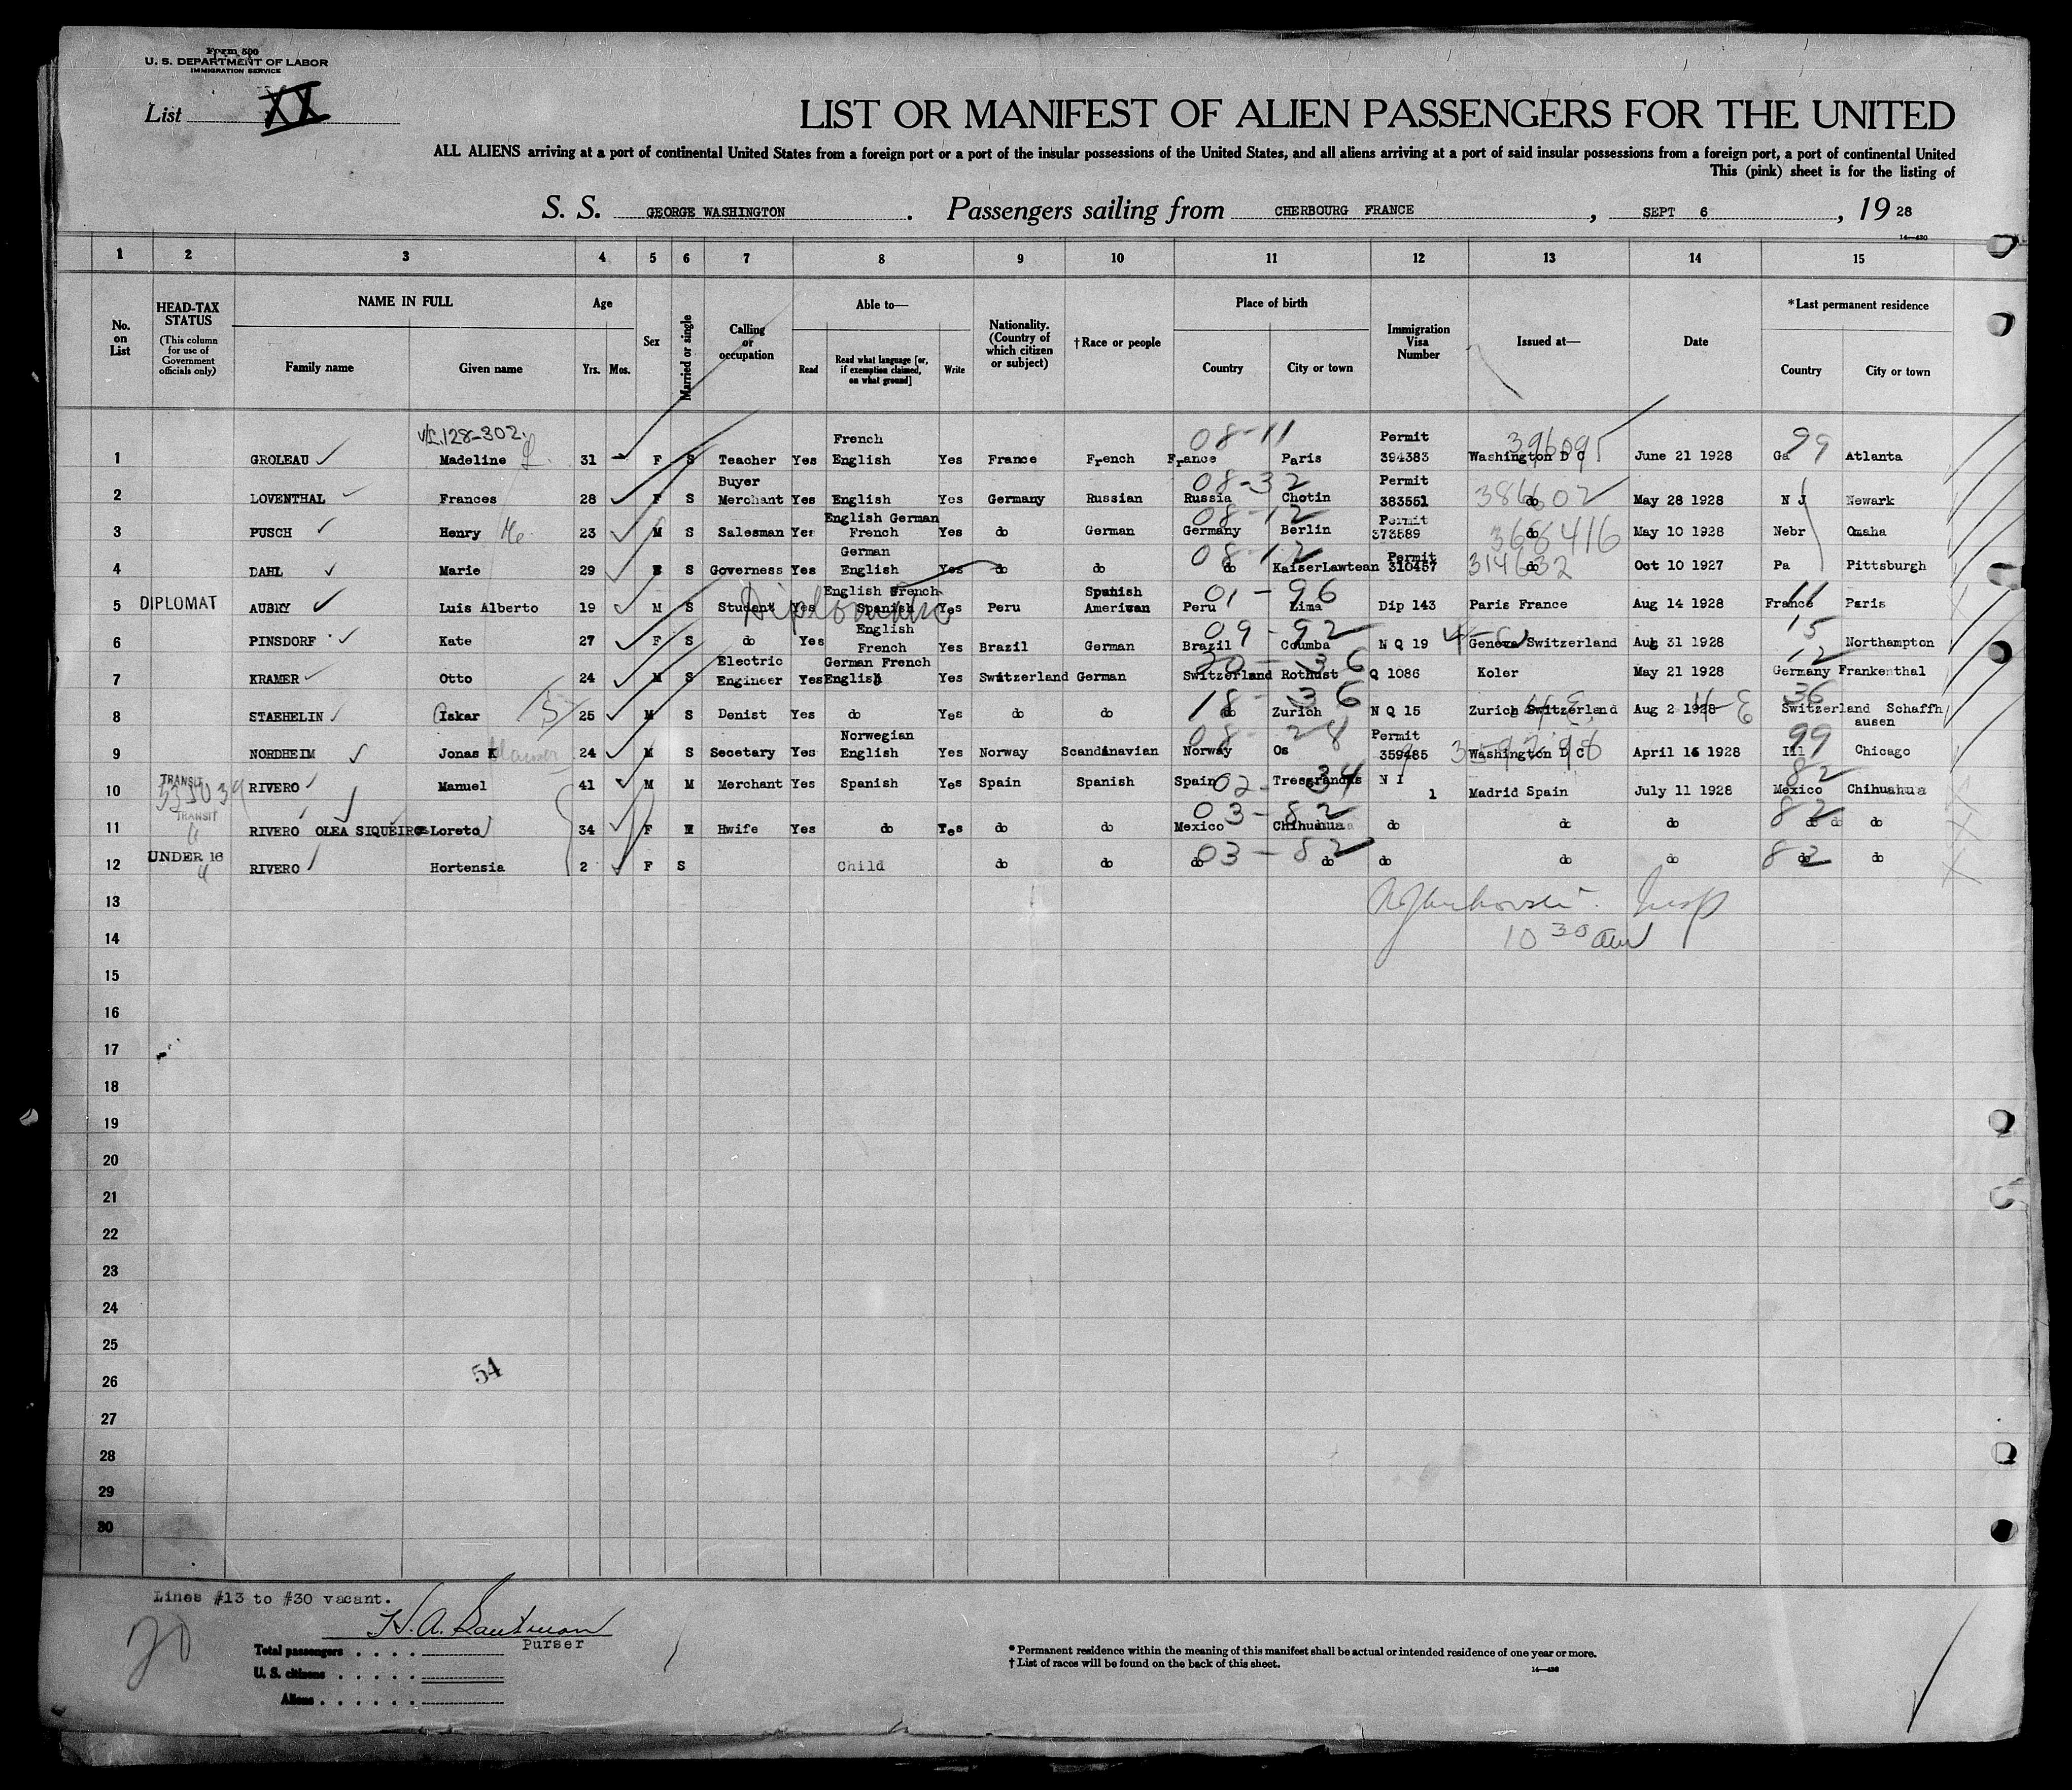 Form 500
U. S. DEPARTMENT OF LABOR
IMMIGRATION SERVICE
List XX
LIST OR MANIFEST OF ALIEN PASSENGERS FOR THE UNITED
ALL ALIENS arriving at a port of continental United States from a foreign port or a port of the insular possessions of the United States, and all aliens arriving at a port of said insular possessions from a foreign port, a port of continental United
This (pink) sheet is for the listing of
S. S. GEORGE WASHINGTON. Passengers sailing from CHERBOURG FRANCE, SEPT 6, 19 28
14—430
1 2 3 4 5 6 7 8 9 10 11 12 13 14 15
No. on List
HEAD-TAX STATUS
(This column for use of Government officials only)
NAME IN FULL
Family name Given name
Age
Yrs. Mos.
Sex
Married or single
Calling or occupation
Able to—
Read
Read what language [or, if exemption claimed, on what ground]
Write
Nationality. (Country of which citizen or subject)
†Race or people
Place of birth
Country City or town
Immigration Visa Number
Issued at—
Date
*Last permanent residence
Country City or town
V/L.128-302. French 08-11 Permit 396095 99
1 GROLEAU Madeline 31 F S Teacher Yes English Yes France French France Paris 394383 Washington D C June 21 1928 Ga Atlanta
Buyer 08-32 Permit
2 LOVENTHAL Frances 28 F S Merchant Yes English Yes Germany Russian Russia Chotin 383551 do 386602 May 28 1928 N J Newark
English German 08-12 Permit
3 PUSCH Henry 23 M S Salesman Yes French Yes do German Germany Berlin 373589 do 368416 May 10 1928 Nebr Omaha
German 08-12 Permit
4 DAHL Marie 29 F S Governess Yes English Yes do do do KaiserLawtean 310457 do 314632 Oct 10 1927 Pa Pittsburgh
English French Spanish 01-96 11
5 DIPLOMAT AUBRY Luis Alberto 19 M S Student Yes Spanish Yes Peru American Peru Lima Dip 143 Paris France Aug 14 1928 France Paris
English 09-92 15
6 PINSDORF Kate 27 F S do Yes French Yes Brazil German Brazil Coumba N Q 19 Geneva Switzerland Aug 31 1928 Northampton
Electric German French 20-36 12
7 KRAMER Otto 24 M S Engineer Yes English Yes Switzerland German Switzerland Rothust Q 1086 Koler May 21 1928 Germany Frankenthal
18-36 36
8 STAEHELIN Oskar 25 M S Denist Yes do Yes do do do Zurich N Q 15 Zurich Switzerland Aug 2 1928 Switzerland Schaffh
ausen
Norwegian 08-28 Permit 99
9 NORDHEIM Jonas K 24 M S Secetary Yes English Yes Norway Scandinavian Norway Os 359485 Washington D C April 16 1928 Ill Chicago
TRANSIT 02-34 82
10 RIVERO Manuel 41 M M Merchant Yes Spanish Yes Spain Spanish Spain Tresgrandas N I 1 Madrid Spain July 11 1928 Mexico Chihuahua
TRANSIT 03-82 82
11 RIVERO OLEA SIQUEIROS Loreto 34 F M Hwife Yes do Yes do do Mexico Chihuahua do do do do do
UNDER 16 03-82 82
12 RIVERO Hortensia 2 F S Child do do do do do do do do do
13
14 10 30 am
15
16
17
18
19
20
21
22
23
24
25
54
26
27
28
29
30
Lines #13 to #30 vacant.
20
Purser
Total passengers
U. S. citizens
Aliens
* Permanent residence within the meaning of this manifest shall be actual or intended residence of one year or more.
† List of races will be found on the back of this sheet.
14—430